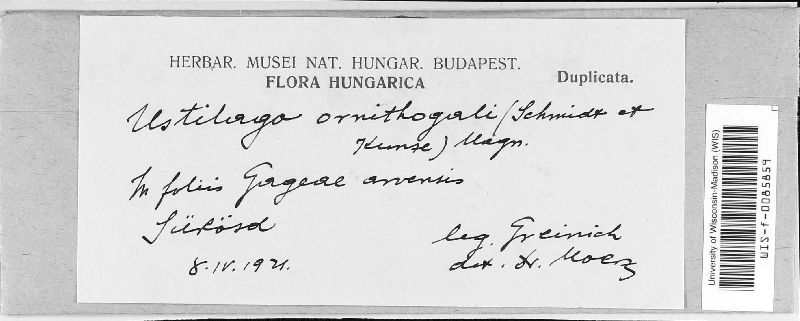 HERBAR. MUSEI NAT. HUNGAR. BUDAPEST.
FLORA HUNGARICA
Duplicata.
Ustilago ornithogali (Schmidt et
Kunze) Magn.
In foliis Gageae arvensis
Sükösd
8.IV.1921.
leg. Greinich
det. Dr. Moesz
University of Wisconsin-Madison (WIS)
WIS-f-0085859